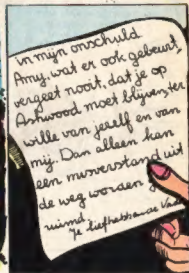 in mijn onschuld.
Amy, wat er ook gebeurt,
vergeet nooit, dat je op
Ashwood moet blijven, ter
wille van jezelf en van
mij. Dan alleen kan
een misverstand uit
de weg worden ge-
ruimd.
Je liefhebbende